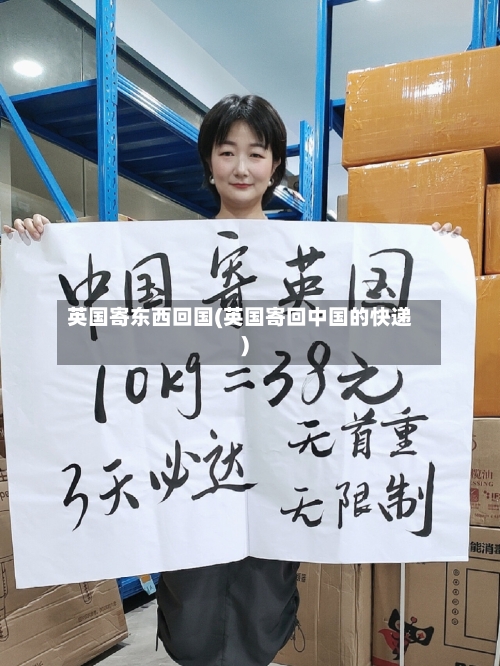 中国寄英国
英国寄东西回国(英国寄回中国的快递
)
10kg=38元
3天必达
无首重
无限制
能消毒